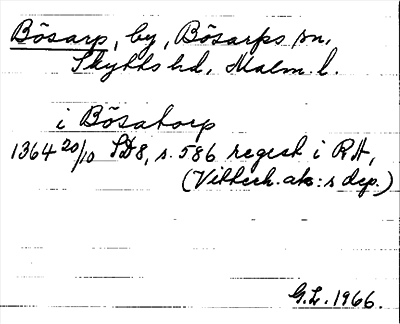 Bösarp, by, Bösarps sn,
Skytts hd, Malm. l.
i Bösatorp
1364 20/10 SD 8, s. 586 regest i RA,
(Vitterh. ak:s dep.)
G.L. 1966.